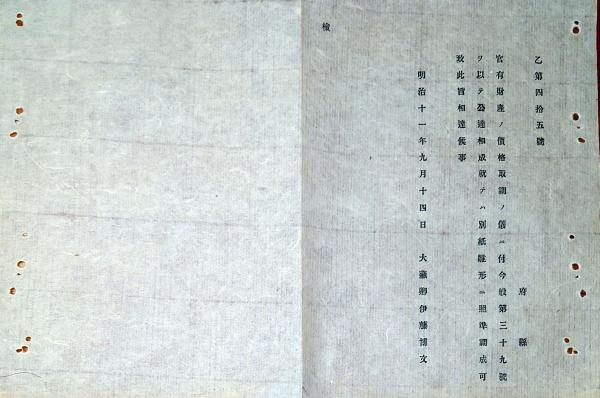 乙第四拾五號
府縣
官有財產ノ價格取調ノ儀ニ付今般第三十九號
ヲ以テ公達相成就テハ別紙雛形ニ照準調成可
致此旨相達候事
明治十一年九月十四日 大藏卿伊藤博文